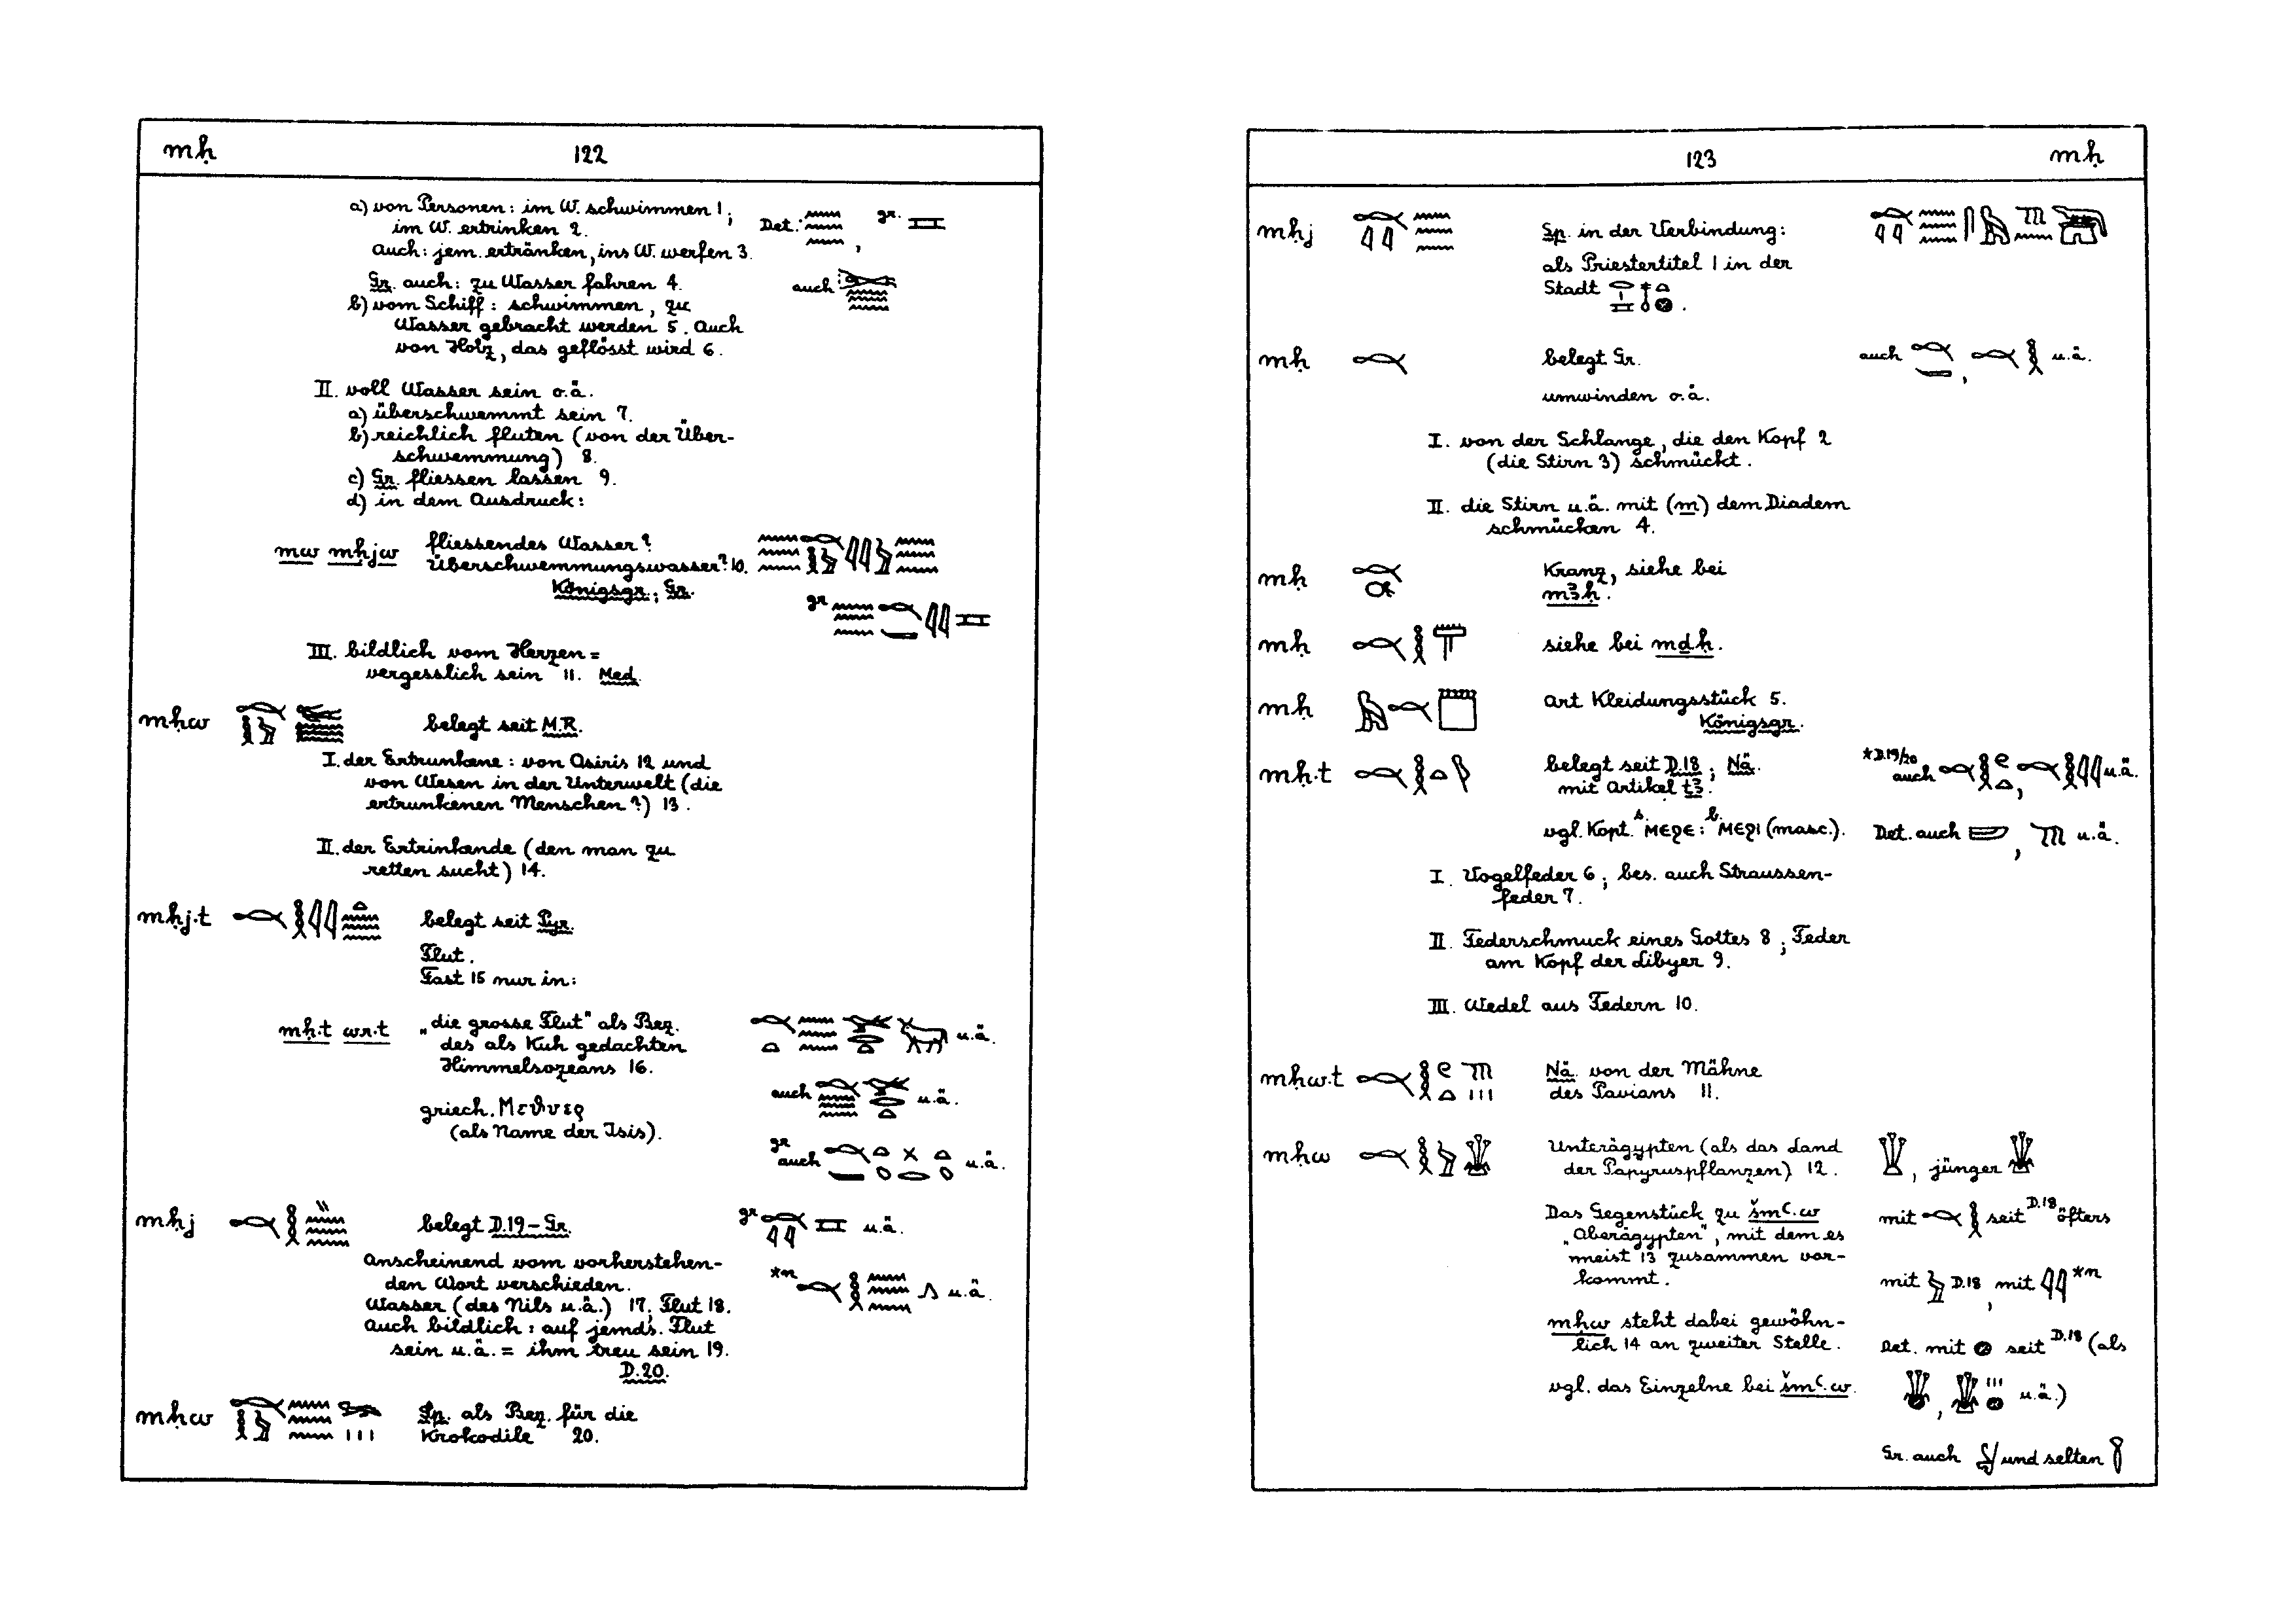 mḥ 122
a) von Personen: im W. schwimmen 1;
im W. ertrinken 2.
Auch: jem. ertränken, ins W. werfen 3.
Det.: , gr.
Gr. auch: zu Wasser fahren 4.
auch
b) vom Schiff: schwimmen, zu
Wasser gebracht werden 5. Auch
von Holz, das geflösst wird 6.
II. voll Wasser sein o.ä.
a) überschwemmt sein 7.
b) reichlich fluten (von der Über-
schwemmung) 8.
c) Gr. fliessen lassen 9.
d) in dem Ausdruck:
mw mḥjw fliessendes Wasser?
Überschwemmungswasser? 10.
Königsgr.; Gr.
gr
III. bildlich vom Herzen =
vergesslich sein 11. Med.
mḥw belegt seit M.R.
I. der Ertrunkene: von Osiris 12 und
von Wesen in der Unterwelt (die
ertrunkenen Menschen?) 13.
II. der Ertrinkende (den man zu
retten sucht) 14.
mḥj.t belegt seit Pyr.
Flut.
Fast 15 nur in:
mḥ.t wr.t „die grosse Flut" als Bez. u.ä.
des als Kuh gedachten
Himmelsozeans 16.
auch u.ä.
griech. Μεθυερ
(als Name der Isis).
gr auch u.ä.
mḥj belegt D.19–Gr. gr u.ä.
Anscheinend vom vorherstehen-
den Wort verschieden. *n u.ä.
Wasser (des Nils u.ä.) 17, Flut 18.
Auch bildlich: auf jemds. Flut
sein u.ä. = ihm treu sein 19.
D.20.
mḥw Sp. als Bez. für die
Krokodile 20.
123 mḥ
mḥj Sp. in der Verbindung:
als Priestertitel 1 in der
Stadt .
mḥ belegt Gr. auch , u.ä.
umwinden o.ä.
I. von der Schlange, die den Kopf 2
(die Stirn 3) schmückt.
II. die Stirn u.ä. mit (m) dem Diadem
schmücken 4.
mḥ Kranz, siehe bei
mꜣḥ.
mḥ siehe bei mdḥ.
mḥ Art Kleidungsstück 5.
Königsgr.
mḥ.t belegt seit D.18; Nä. *D.19/20
mit Artikel tꜣ. auch , u.ä.
vgl. Kopt. s. ⲙⲉϩⲉ: b. ⲙⲉϩⲓ (masc.). Det. auch , u.ä.
I. Vogelfeder 6; bes. auch Straussen-
feder 7.
II. Federschmuck eines Gottes 8; Feder
am Kopf der Libyer 9.
III. Wedel aus Federn 10.
mḥw.t Nä. von der Mähne
des Pavians 11.
mḥw Unterägypten (als das Land
der Papyruspflanzen) 12. , jünger
Das Gegenstück zu šmꜥ.w mit seit D.18 öfters
„Oberägypten", mit dem es
meist 13 zusammen vor-
kommt. mit D.18, mit *n
mḥw steht dabei gewöhn-
lich 14 an zweiter Stelle. Det. mit seit D.18 (als
vgl. das Einzelne bei šmꜥ.w. , u.ä.)
Gr. auch und selten